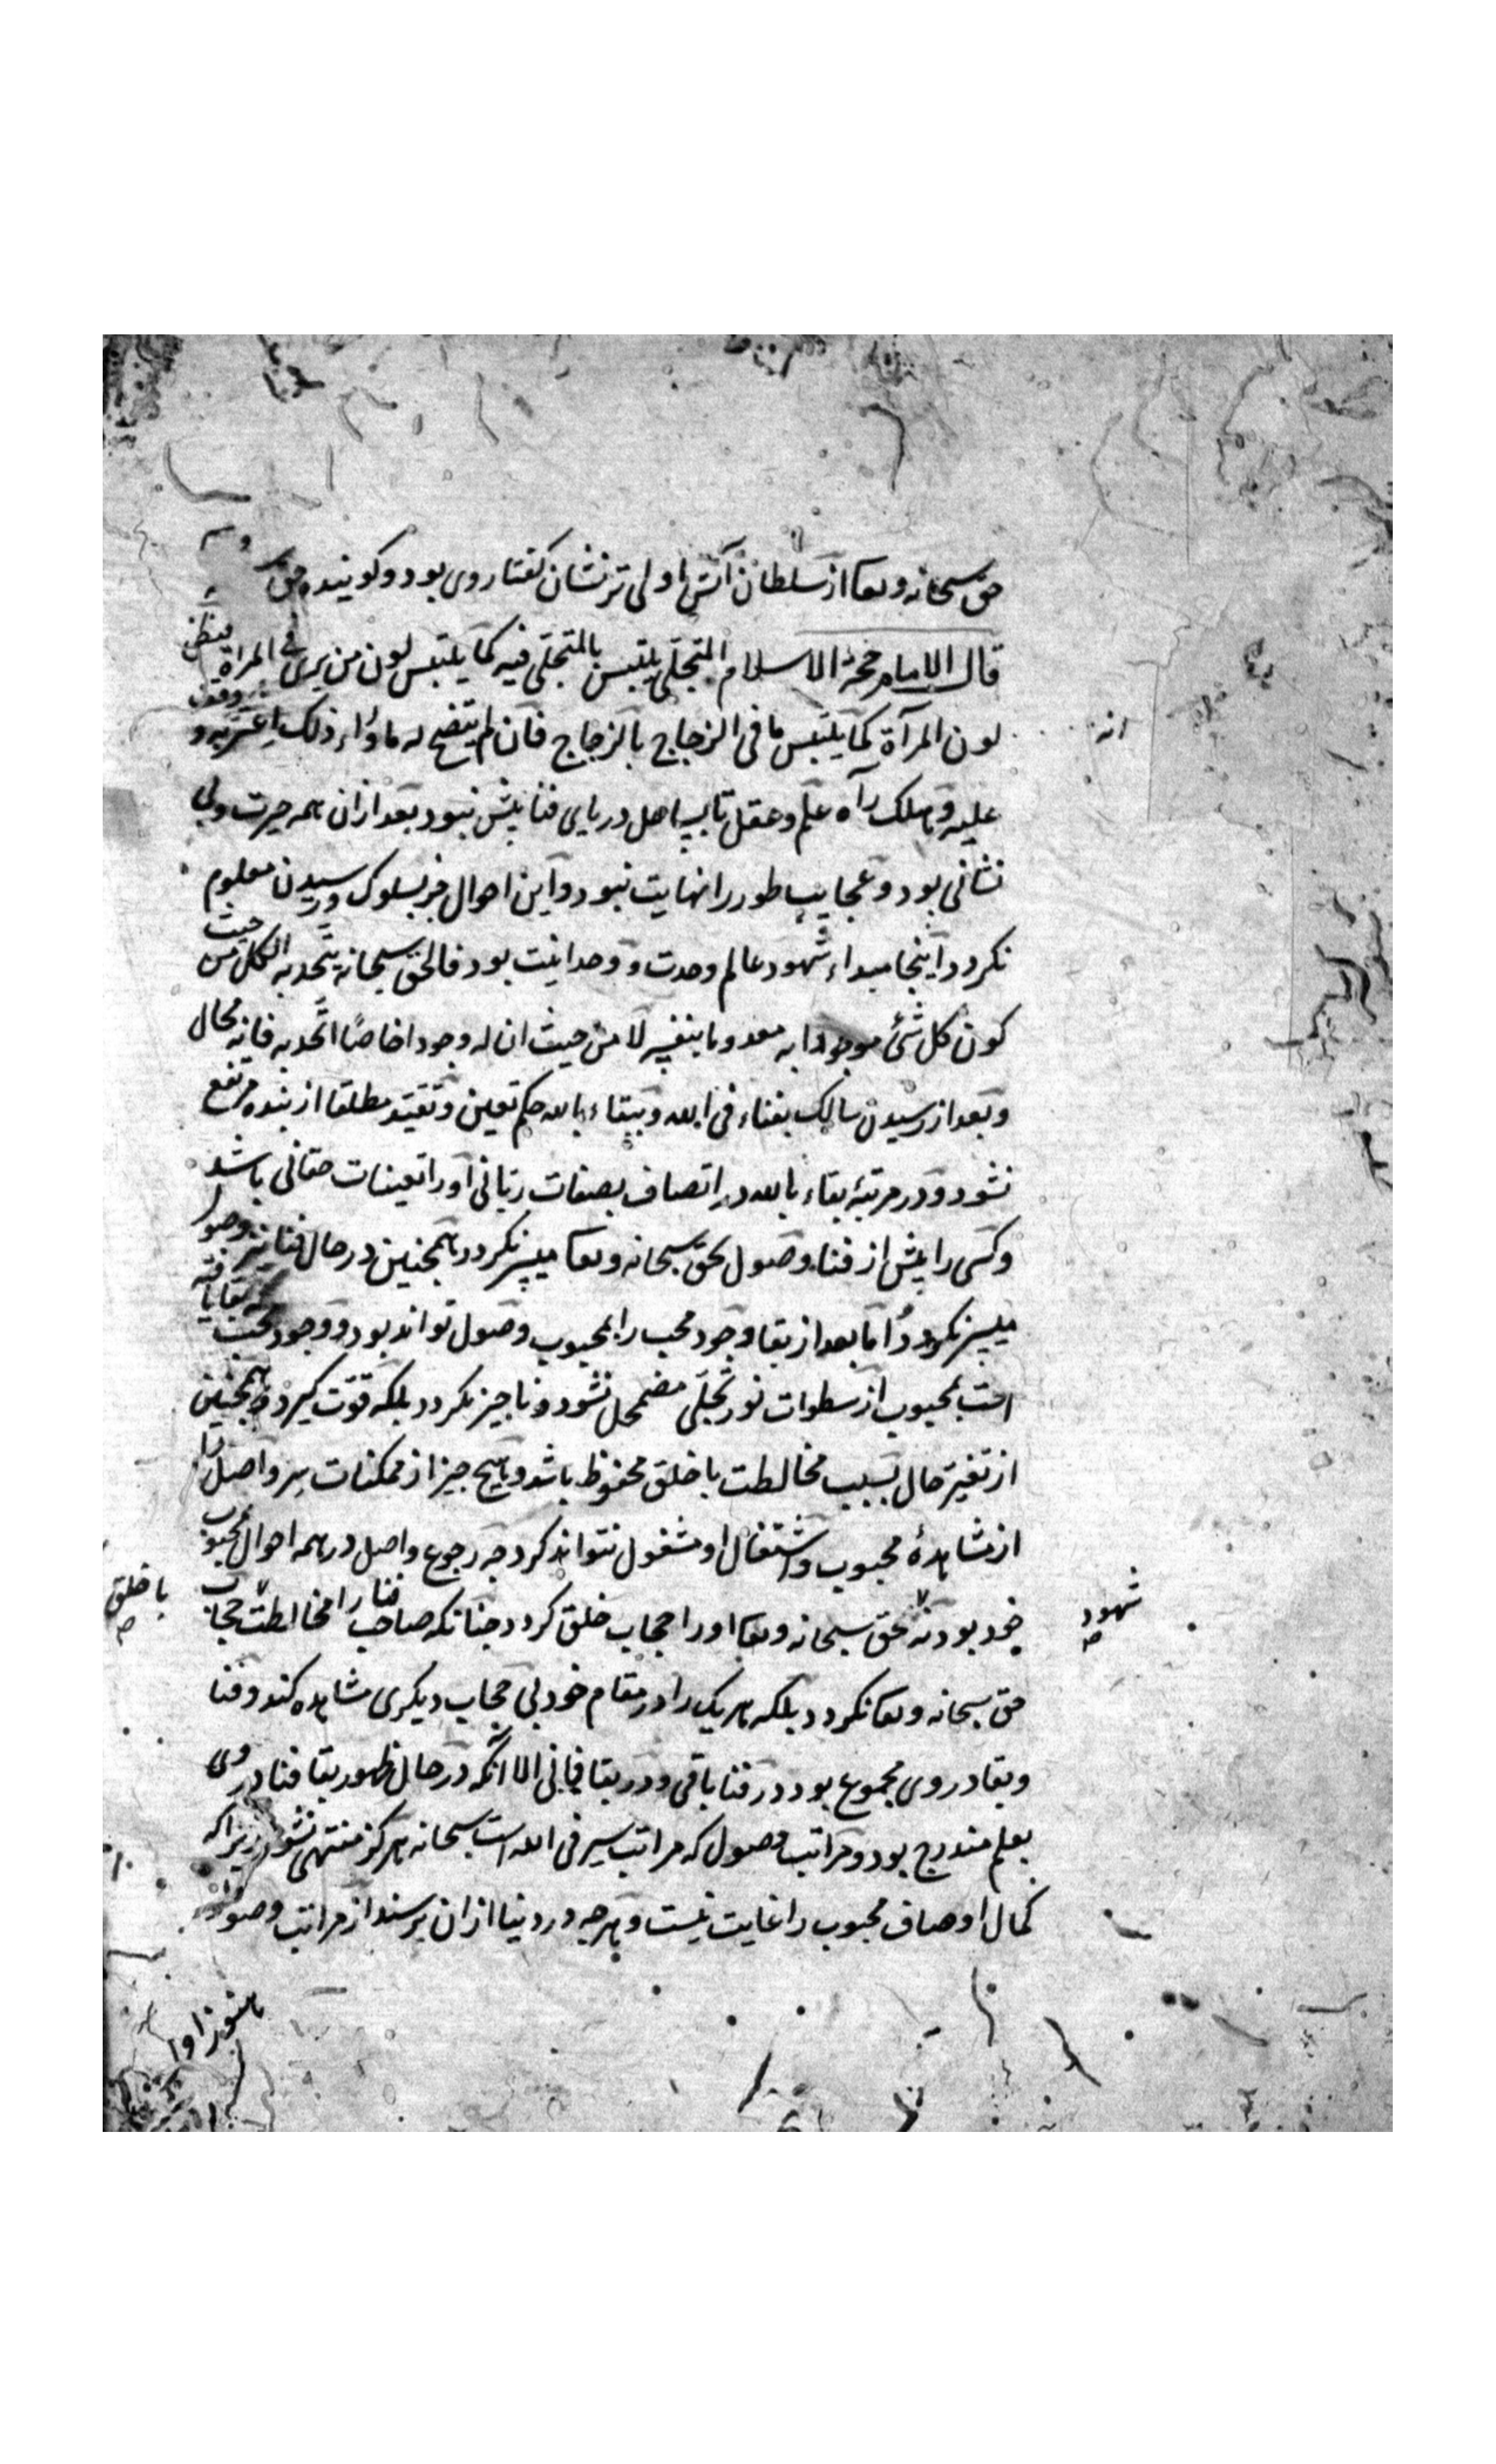 حق سبحانه وتعا از سلطان آتش اولی تر نشان گفتار وی بود و گوینده حق
قال الامام حجة الاسلام المتجلی یلتبس بالمتجلی فیه کما یلتبس لون من یری فی المراة فیظن
لون المرآة کما یلتبس ما فی الزجاج بالزجاج فان لم یتضح له ماوراء ذلک اغتر به و وقف
علیه وهلک راه علم وعقل تا بساحل دریای فنا بیش نبود بعد از ان همه حیرت وبی
نشانی بود وعجایب طور را نهایت نبود واین احوال جز بسلوک ورسیدن معلوم
نکردد اینجا مبداء شهود عالم وحدت و وحدانیت بود فالحق سبحانه یتحد به الکل من حیث
کون کل شئ موجودا به معدوما بنفسه لا من حیث ان له وجودا خاصا اتحد به فانه محال
وبعد از رسیدن سالک بفناء فی الله وببقاء بالله حکم تعین وتقید مطلقا از بنده مرتفع
نشود ودر مرتبۀ بقاء بالله در اتصاف بصفات ربانی او را تعینات حقانی باشد
وکسی را پیش از فناء وصول بحق سبحانه وتعا میسر نکردد همچنین در حال فنا نیز وصول
میسر نکردد اما بعد از بقا وجود محب را بمحبوب وصول تواند بود و وجود محب
محبوب از سطوات نور تجلی مضمحل نشود وناچیز نکردد بلکه قوت کیرد وهمچنین
از تغیر حال بسبب مخالطت با خلق محفوظ باشد وهیچ چیز از ممکنات سر واصل را
از مشاهدۀ محبوب واشتغال او مشغول نتواند کرد چه رجوع واصل در همه احوال بمحبوب
خود بود نه بحق سبحانه وتعا او را حجاب خلق کردد چنانکه صاحب فنا را مخالطت حجاب
حق سبحانه وتعا نکردد بلکه هر یک را در مقام خود بی حجاب دیکری مشاهده کند وفنا
وبقا در وی مجموع بود در فنا باقی ودر بقا فانی الا آنکه در حال ظهور بقا فنا در وی
بعلم مندرج بود ومراتب وصول که مراتب سیر فی الله است سبحانه هرکز منتهی نشود زیرا که
کمال اوصاف محبوب را غایت نیست وهرچه در دنیا ازان برسند از مراتب وصول
انه
شهود
با خلق
هنوز اول